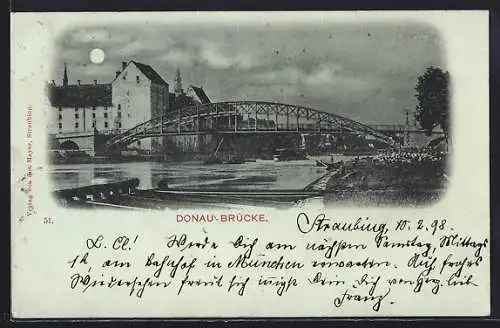 Verlag von Otto Mayer, Straubing.
51.
DONAU-BRÜCKE.
Straubing, 10.2.98.
L. Cl! Werde Dich am nächsten Samstag, Mittags
12, am Bahnhof in München erwarten. Auf, frohes
Wiedersehen freut sich Dein Dich von Herzen lieb.
Franz.